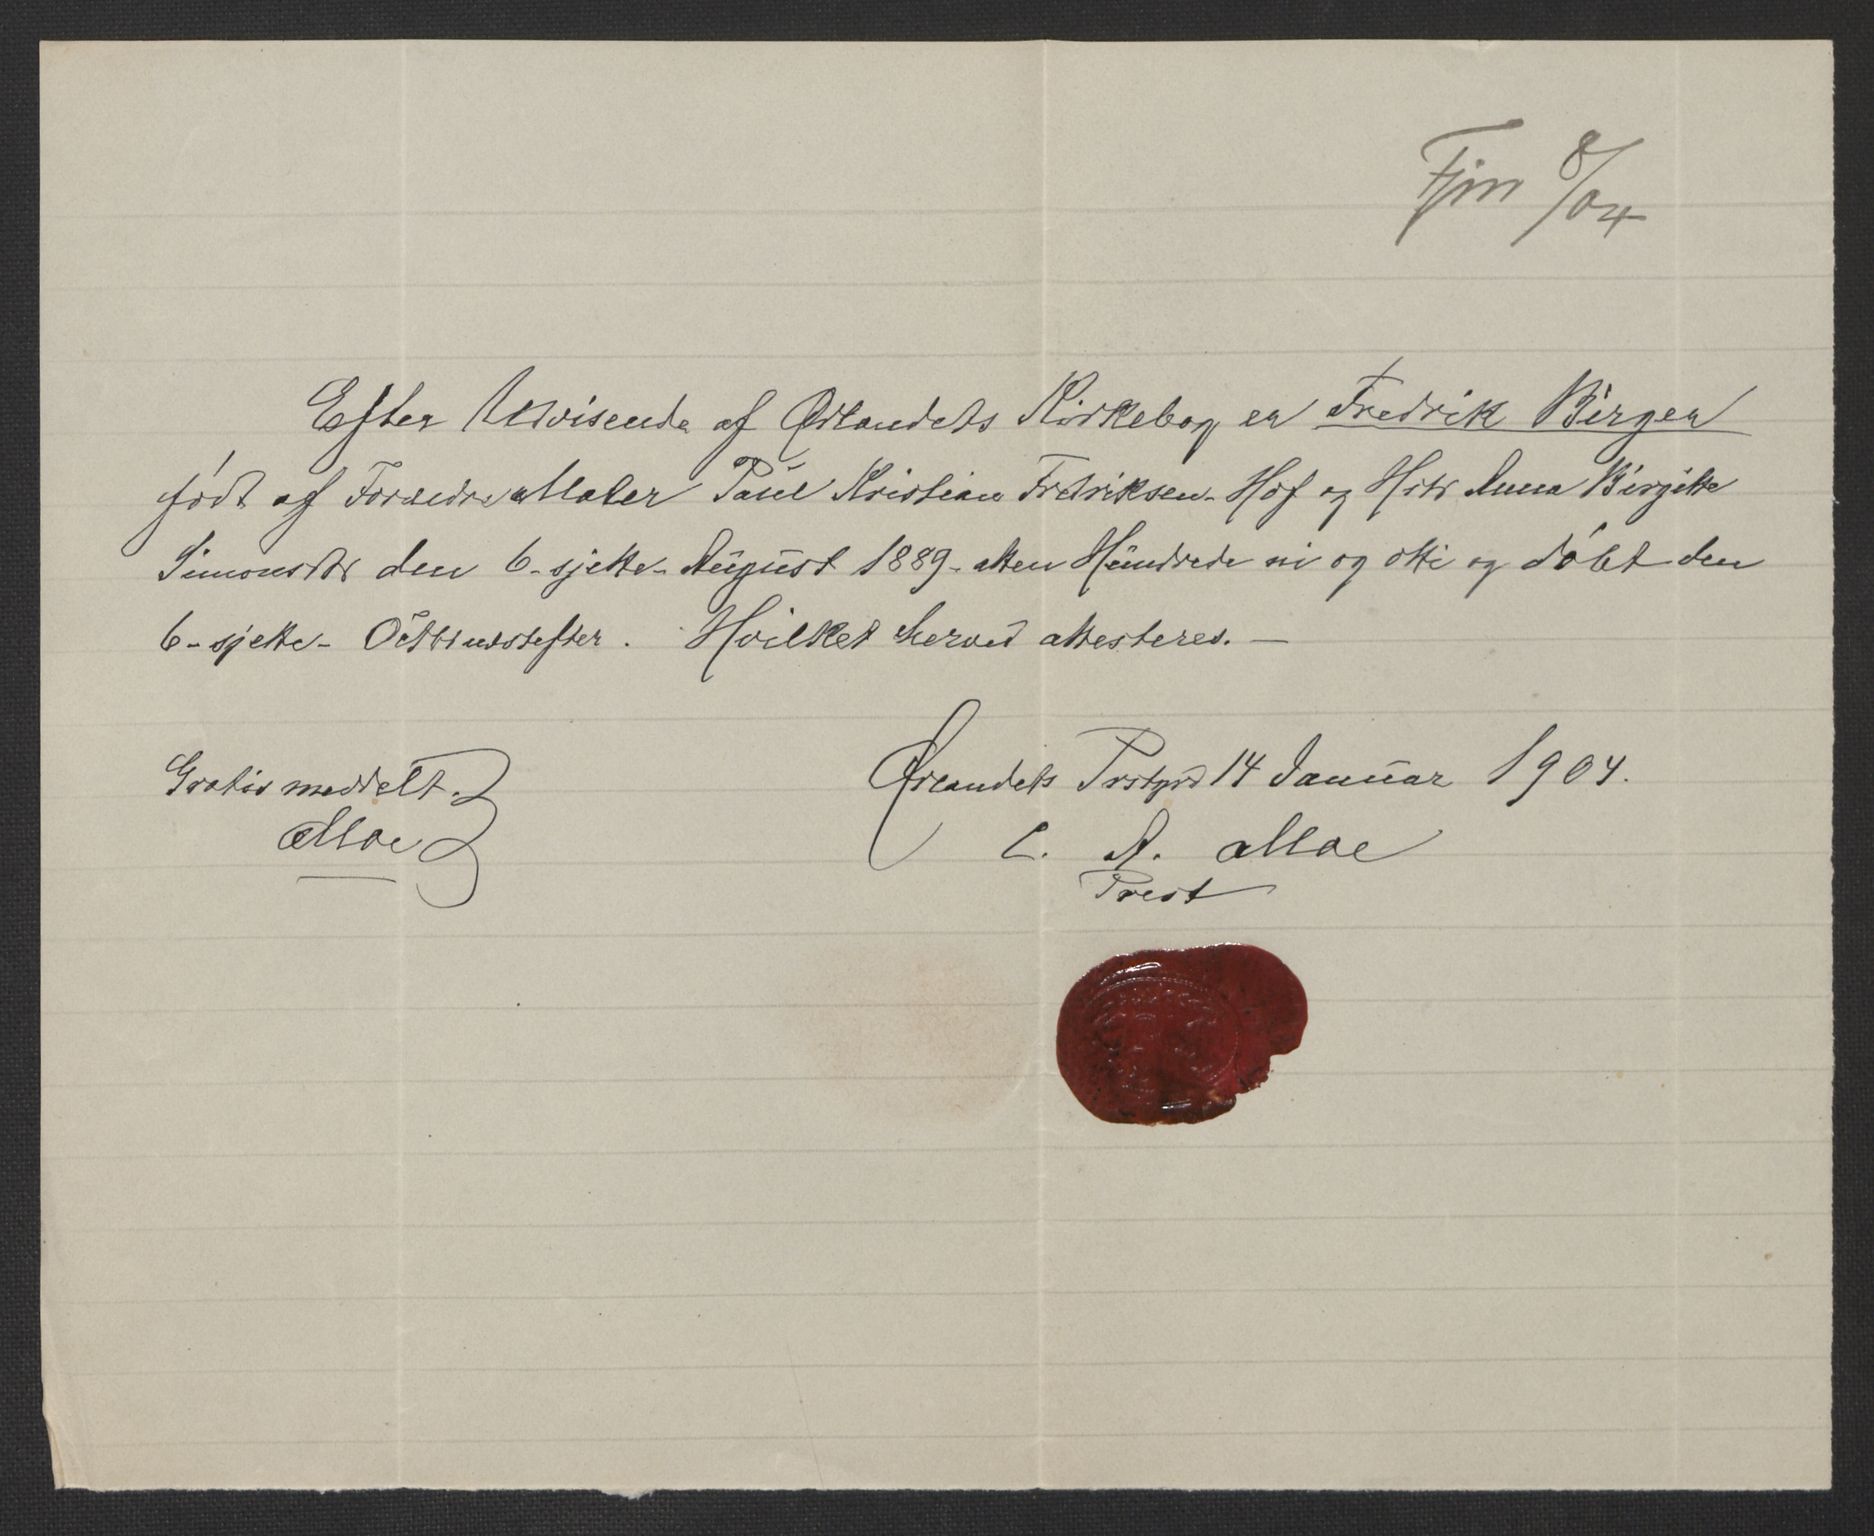 Fjm 8/04
Efter Udvisende af Ørlandets Kirkebog er Fredrik Birger
født af Forældre Maler Paul Kristian Fredriksen Hof og Hstr Anna Birgitte
Simonsdtr den 6-sjette- August 1889- atten Hundrede ni og otti og døbt den
6-sjette- Oktbr næstefter. Hvilket herved attesteres.—
Gratis meddelt.
Moe
Ørlandets Prstgrd 14 Januar 1904.
C. A. Moe
Prest